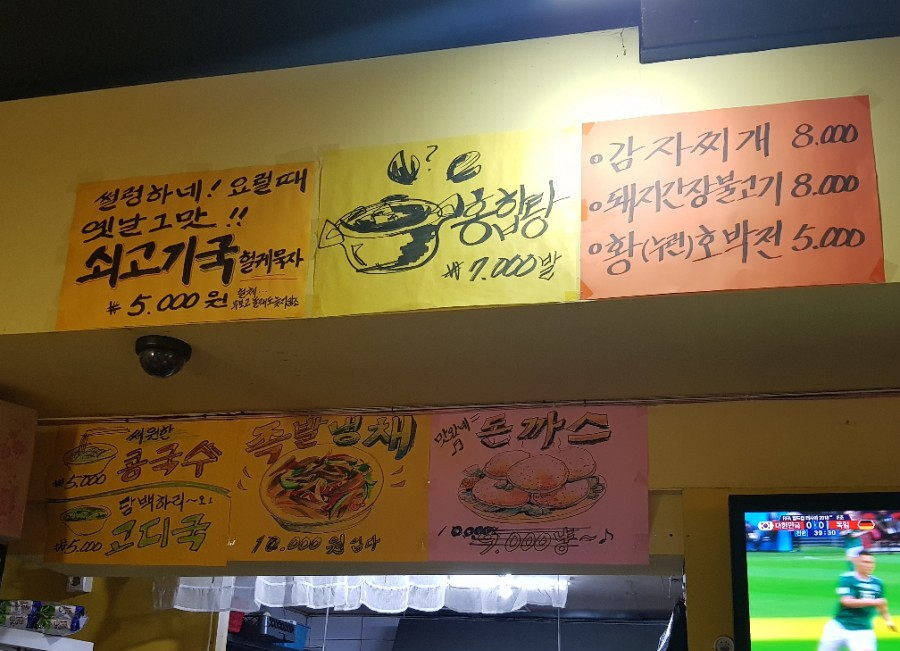 썰렁하네! 요럴때
옛날 그맛!!
쇠고기국 헐케묵자
₩ 5.000 원
?
홍합탕
₩ 7.000 발
감자찌개 8.000
돼지간장불고기 8.000
황(누런)호박전 5.000
써원한
콩국수
₩5.000
담백하리~오!
고디국
₩5.000
족발냉채
10.000 원 십다
맛와네
돈까스
10.000
9.000 냥~♪
FIFA 월드컵 러시아 2018
대한민국 0:0 독일
39:30